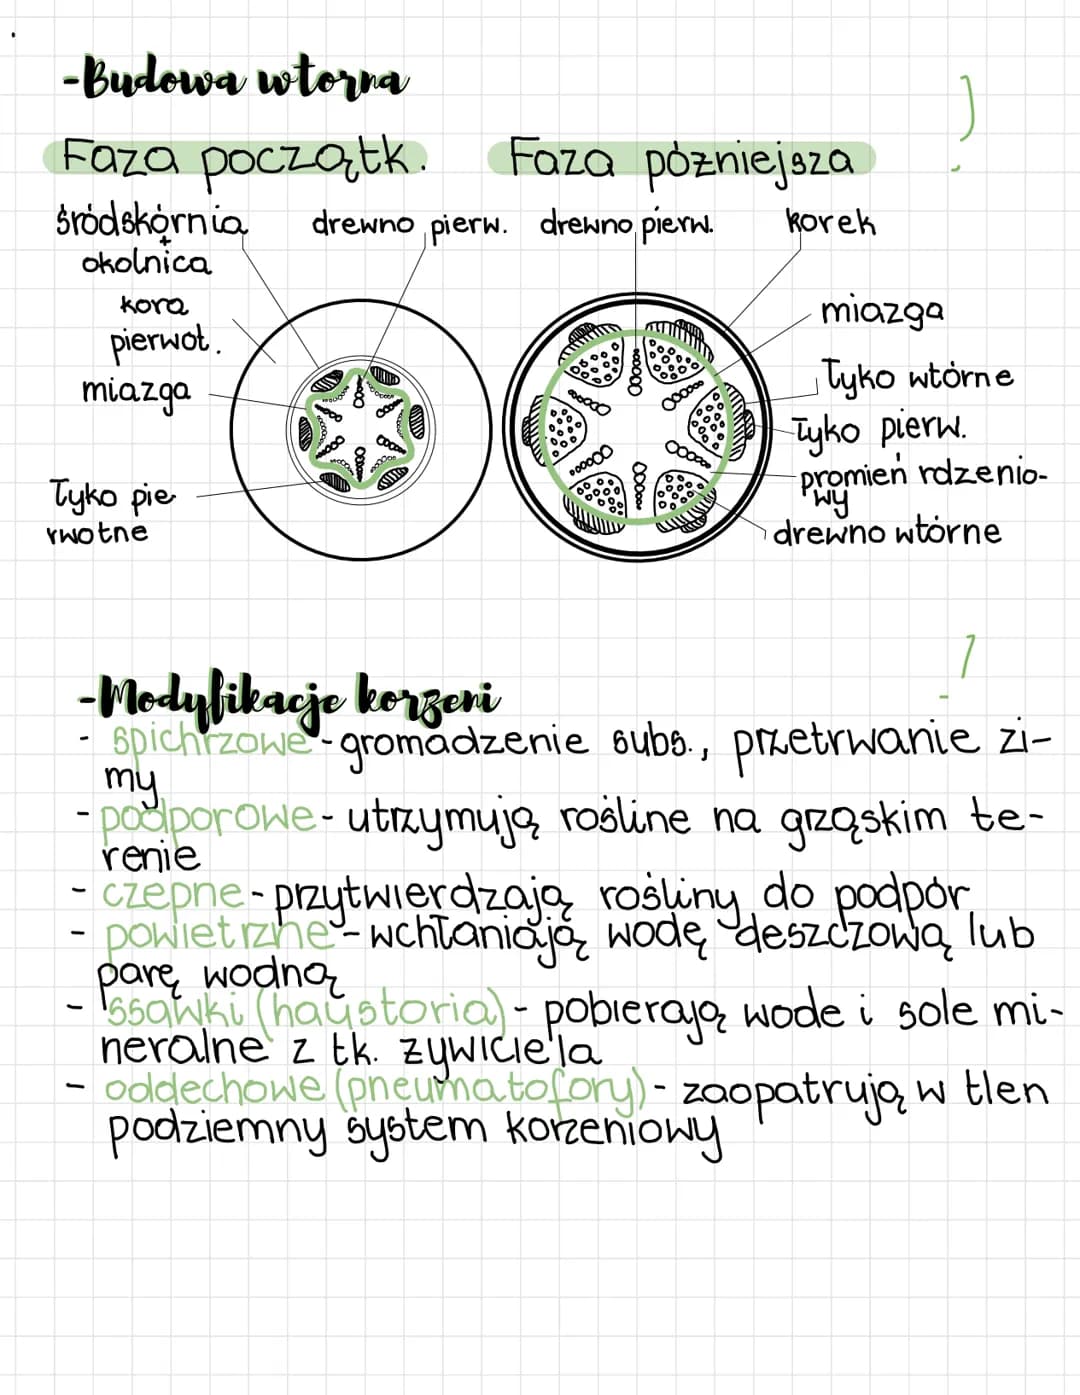 -Budowa wtorna
Faza początk. Faza późniejsza
śródskórnia drewno pierw. drewno pierw. korek
+
okolnica
kora
pierwot.
miazga
miazga
Łyko wtórne
Łyko pierw.
promień rdzenio-
wy
drewno wtórne
Łyko pie
rwotne
-Modyfikacje korzeni
- spichrzowe - gromadzenie subs., przetrwanie zi-
my
- podporowe - utrzymują rośline na grząskim te-
renie
- czepne - przytwierdzają rośliny do podpór
- powietrzne - wchłaniają wodę deszczową lub
parę wodną
- ssawki (haustoria) - pobierają wode i sole mi-
neralne z tk. żywiciela
- oddechowe (pneumatofory) - zaopatrują w tlen
podziemny system korzeniowy